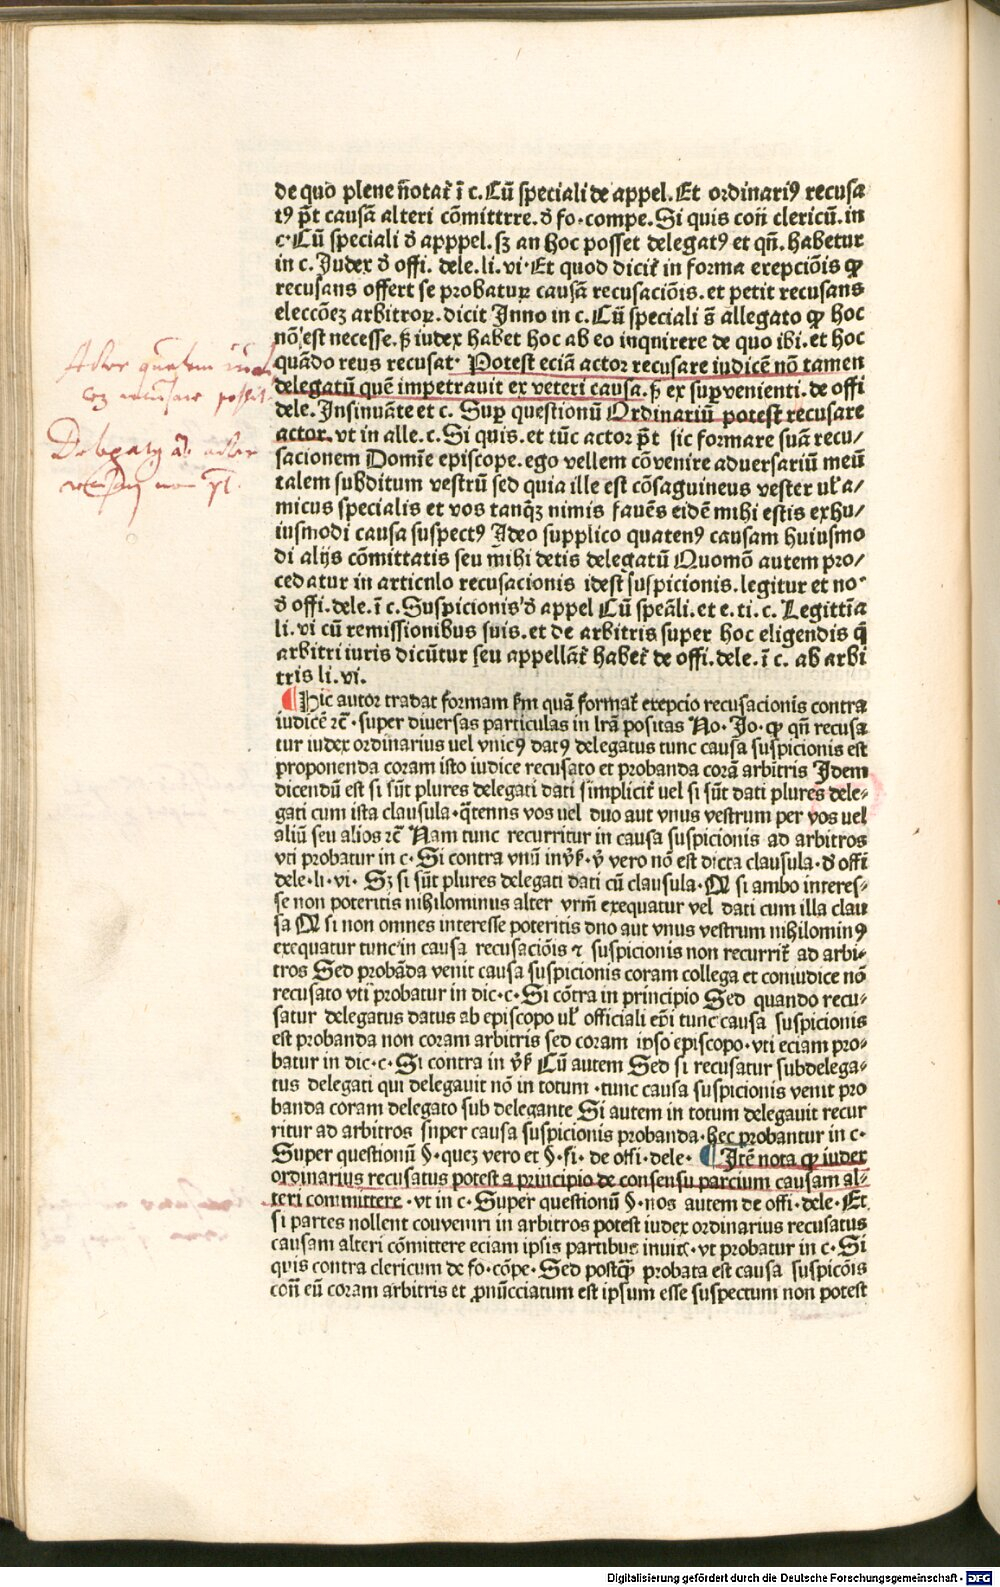 de quo plene ñotat᷑ ī c. Cū speciali de appel. Et ordinariꝰ recusa
tꝰ p̄t causā alteri cōmittrre. ď fo. compe. Si quis coñ clericū. in
c. Cū speciali ď apppel. sꝫ an hoc posset delegatꝰ et qñ. habetur
in c. Judex ď offi. dele. li. vi. Et quod dicit᷑ in forma exepciōis ꝙ
recusans offert se probaturꝝ causā recusaciōis. et petit recusans
eleccōeꝫ arbitroꝝ. dicit Inno in c. Cū speciali s̄ allegato ꝙ hoc
nō est necesse. sꝫ iudex habet hoc ab eo inquirere de quo ibi. et hoc
quādo reus recusat. Potest eciā actor recusare iudicē nō tamen
delegatū quē impetrauit ex veteri causa. sꝫ ex supervenienti. de offi
dele. Insinuāte et c. Suꝑ questionū Ordinariū potest recusare
actor. vt in alle. c. Si quis. et tūc actor p̄t sic formare suā recu/
sacionem Domīe episcope. ego vellem cōvenire adversariū meū
talem subditum vestrū sed quia ille est cōsaguineus vester ul̄ a/
micus specialis et vos tanqꝫ nimis favēs eidē mihi estis exhu/
iusmodi causa suspectꝰ Ideo supplico quatenꝰ causam huiusmo
di alijs cōmittatis seu mihi detis delegatū Quomō autem pro/
cedatur in articnlo recusacionis idest suspicionis. legitur et no
ď offi. dele. ī c. Suspicionis ď appel Cū speāli. et e. ti. c. Legittīa
li. vi cū remissionibus suis. et de arbitris super hoc eligendis q̄
arbitri iuris dicūtur seu appellāt᷑ habet᷑ de offi. dele. ī c. ab arbi
tris li. vi.
Hic autor tradat formam s̄m quā format᷑ exepcio recusacionis contra
iudicē ⁊c̄. super diuersas particulas in lrā positas No. Jo. ꝙ qñ recusa
tur iudex ordinarius uel vnicꝰ datꝰ delegatus tunc causa suspicionis est
proponenda coram isto iudice recusato et probanda corā arbitris Idem
dicendū est si sūt plures delegati dati simplicit᷑ uel si sūt dati plures dele-
gati cum ista clausula. q̄tenns vos uel duo aut vnus vestrum per vos uel
aliū seu alios ⁊c̄ Nam tunc recurritur in causa suspicionis ad arbitros
vti probatur in c. Si contra vnū in v̄s. v̄ vero nō est dicta clausula. ď offi
dele. li. vi. Sꝫ si sūt plures delegati dati cū clausula. Q si ambo interes-
se non poteritis nihilominus alter vrm̄ exequatur vel dati cum illa clau
sa Q si non omnes interesse poteritis dno aut vnus vestrum nihilominꝰ
exequatur tunc in causa recusaciōis ⁊ suspicionis non recurrit᷑ ad arbi-
tros Sed probāda venit causa suspicionis coram collega et coniudice nō
recusato vti probatur in dic. c. Si cōtra in principio Sed quando recu-
satur delegatus datus ab episcopo ul̄ officiali ep̄i tunc causa suspicionis
est probanda non coram arbitris sed coram ipso episcopo. vti eciam pro-
batur in dic. c. Si contra in v̄s Cū autem Sed si recusatur subdelega-
tus delegati qui delegauit nō in totum. tunc causa suspicionis venit pro
banda coram delegato sub delegante Si autem in totum delegauit recur
ritur ad arbitros snper causa suspicionis probanda. hec probantur in c.
Super questionū §. quez vero et §. fi. de offi. dele. Itē nota ꝙ iudex
ordinarius recusatus potest a principio de consensu parcium causam al-
teri committere. vt in c. Super questionū §. nos autem de offi. dele. Et
si partes nollent couveniri in arbitros potest iudex ordinarius recusatus
causam alteri cōmittere eciam ipsis partibus inuit̄. vt probatur in c. Si
quis contra clericum de fo. cōpe. Sed postꝙ̄ probata est causa suspicōis
coñ eū coram arbitris et ꝓnūcciatum est ipsum esse suspectum non potest
Digitalisierung gefördert durch die Deutsche Forschungsgemeinschaft - DFG